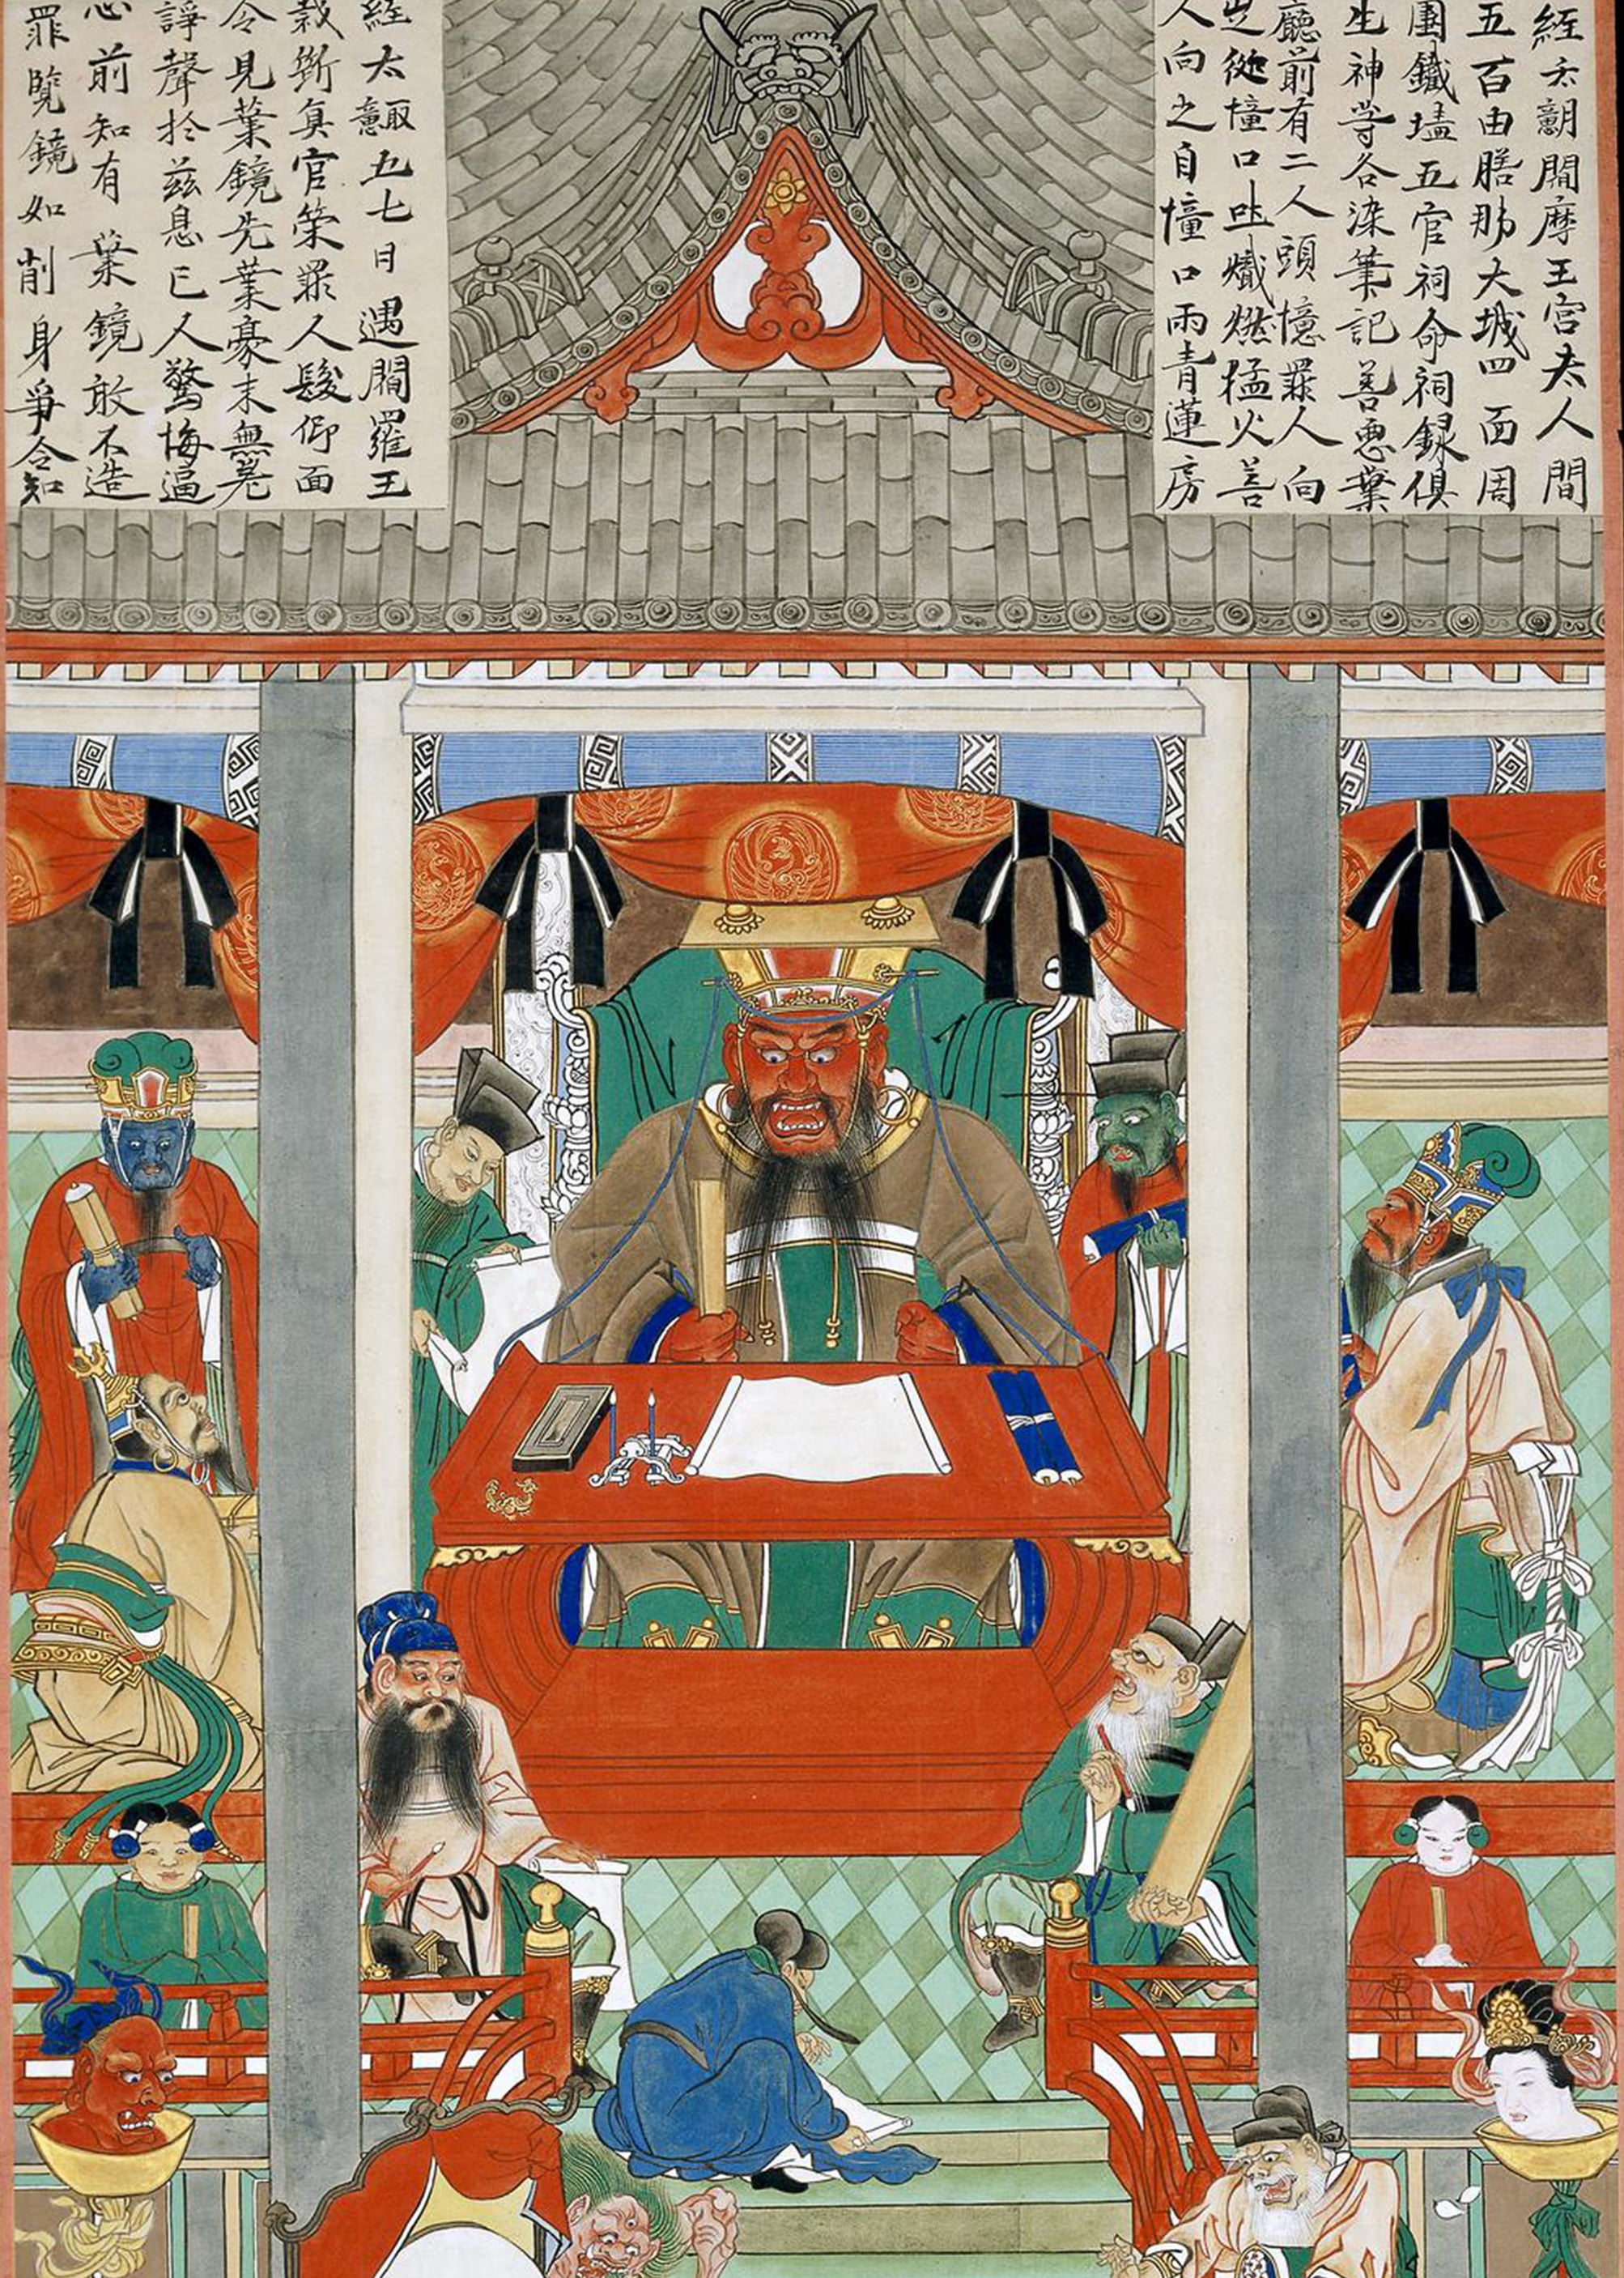 經云閻摩王宮去人間
五百由膳那大城四面周
圍鐵墻五官祠命祠録俱
生神等各染筆記善惡業
廳前有二人頭憶罪人向
之從憧口吐熾燃猛火善
人向之自憧口雨青蓮房
經意取五七日遇閻羅王
裁斷冥官策罪人髮仰面
令見業鏡先業豪末無差
諍聲於茲息已人驚悔逼
心前知有業鏡敢不造
罪覽鏡如削身爭今知